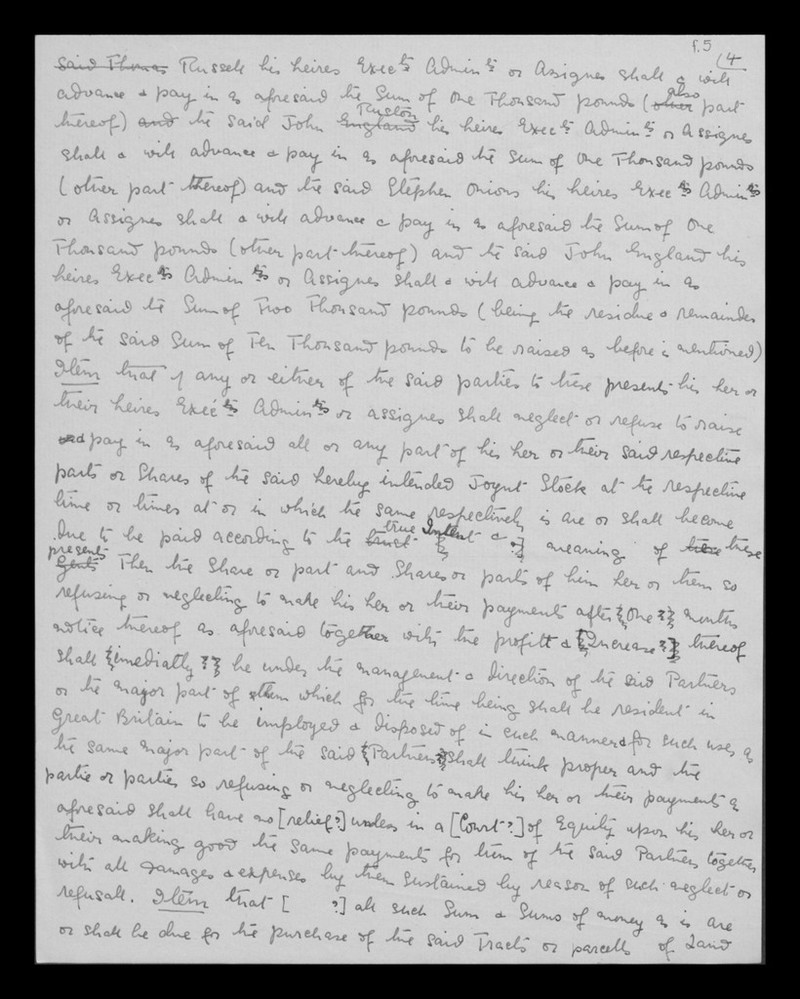 f.5
(4
said Thomas Russell his heires Exects Admints or Assignes shall & will
advance & pay in as aforesaid the Sum of One Thousand pounds (other also part
thereof) and the said John England Ruston his heires Exects Admints or Assignes
shall & will advance & pay in as aforesaid the Sum of One Thousand pounds
(other part thereof) and the said Stephen Onions his heires Execrs Adminrs
or Assignes shall & will advance & pay in as aforesaid the Sum of One
Thousand pounds (other part thereof) and the said John England his
heires Execrs Adminrs or Assignes shall & will advance & pay in as
aforesaid the Sum of Two Thousand pounds (being the residue & remainder
of the said Sum of Ten Thousand pounds to be raised as before is mentioned)
Item that if any or either of the said parties to these presents his her or
their heires Execrs Adminrs or assignes shall neglect or refuse to raise
and pay in as aforesaid all or any part of his her or their said respective
parts or Shares of the said hereby intended Joynt Stock at the respective
time or times at or in which the same respectively is are or shall become
due to be paid according to the true Intent & meaning of these
presents Then the Share or part and Shares or parts of him her or them so
refusing or neglecting to make his her or their payments after {One ?} months
notice thereof as aforesaid together with the profitt & {Increase ?} thereof
shall {imediatly ?} be under the management & direction of the said Partners
or the major part of them which for the time being shall be resident in
Great Britain to be imployed & disposed of in such manner & for such uses as
the same major part of the said {Partners} shall think proper and the
partie or parties so refusing or neglecting to make his her or their payments as
aforesaid shall have no [relief ?] unless in a [Court ?] of Equity upon his her or
their making good the same payments for them of the said Partners together
with all damages & expenses by them sustained by reason of such neglect or
refusall. Item that [ ?] all such Sum & Sums of money as is are
or shall be due for the purchase of the said Tracts or parcells of Land